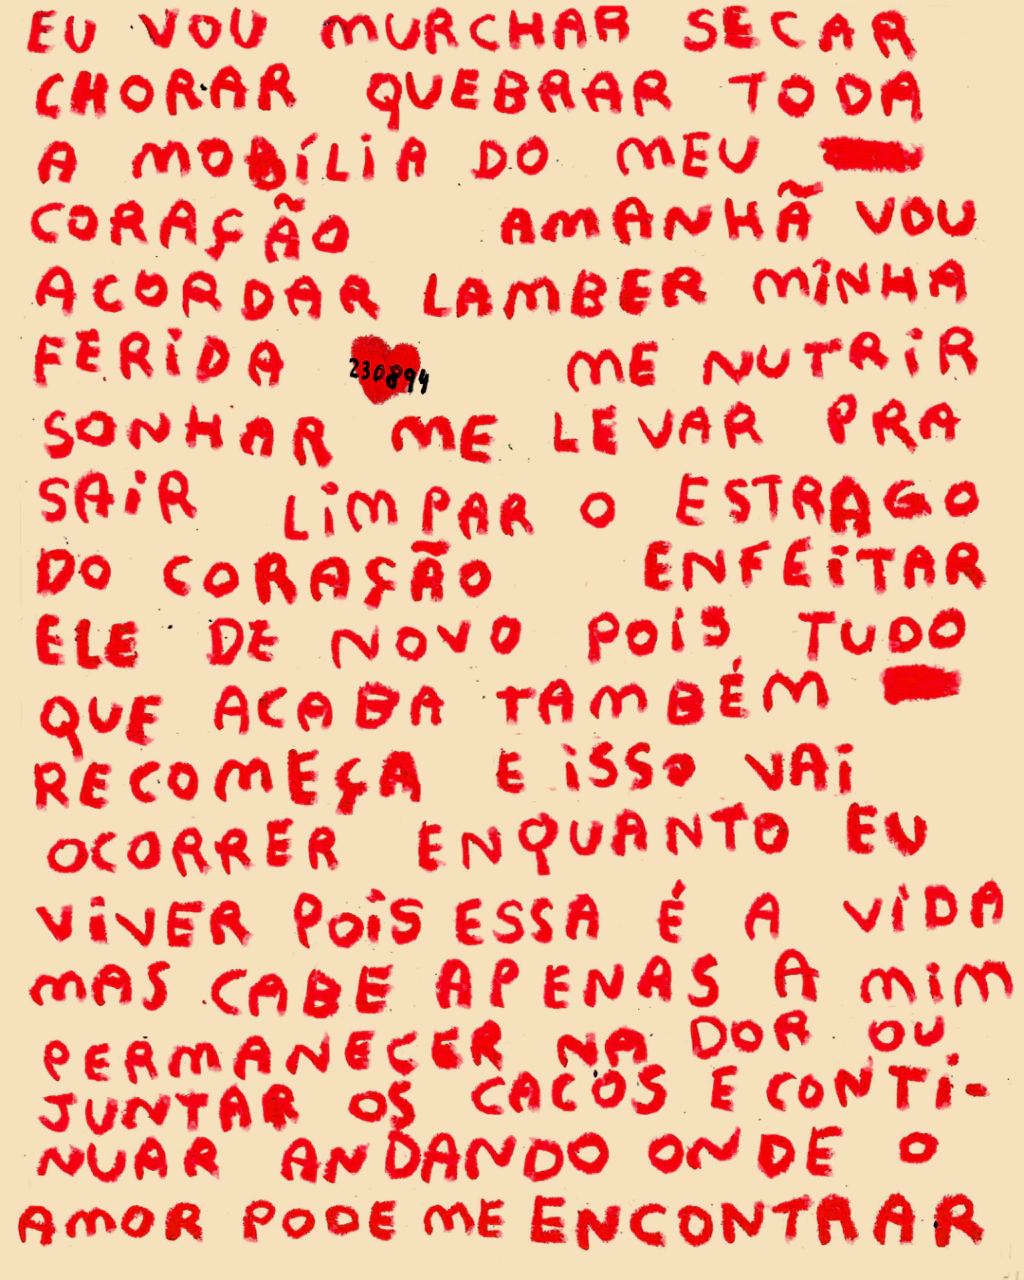 EU VOU MURCHAR SECAR
CHORAR QUEBRAR TODA
A MOBÍLIA DO MEU
CORAÇÃO AMANHÃ VOU
ACORDAR LAMBER MINHA
FERIDA 230894 ME NUTRIR
SONHAR ME LEVAR PRA
SAIR LIMPAR O ESTRAGO
DO CORAÇÃO ENFEITAR
ELE DE NOVO POIS TUDO
QUE ACABA TAMBÉM
RECOMEÇA E ISSO VAI
OCORRER ENQUANTO EU
VIVER POIS ESSA É A VIDA
MAS CABE APENAS A MIM
PERMANECER NA DOR OU
JUNTAR OS CACOS E CONTI-
NUAR ANDANDO ONDE O
AMOR PODE ME ENCONTRAR